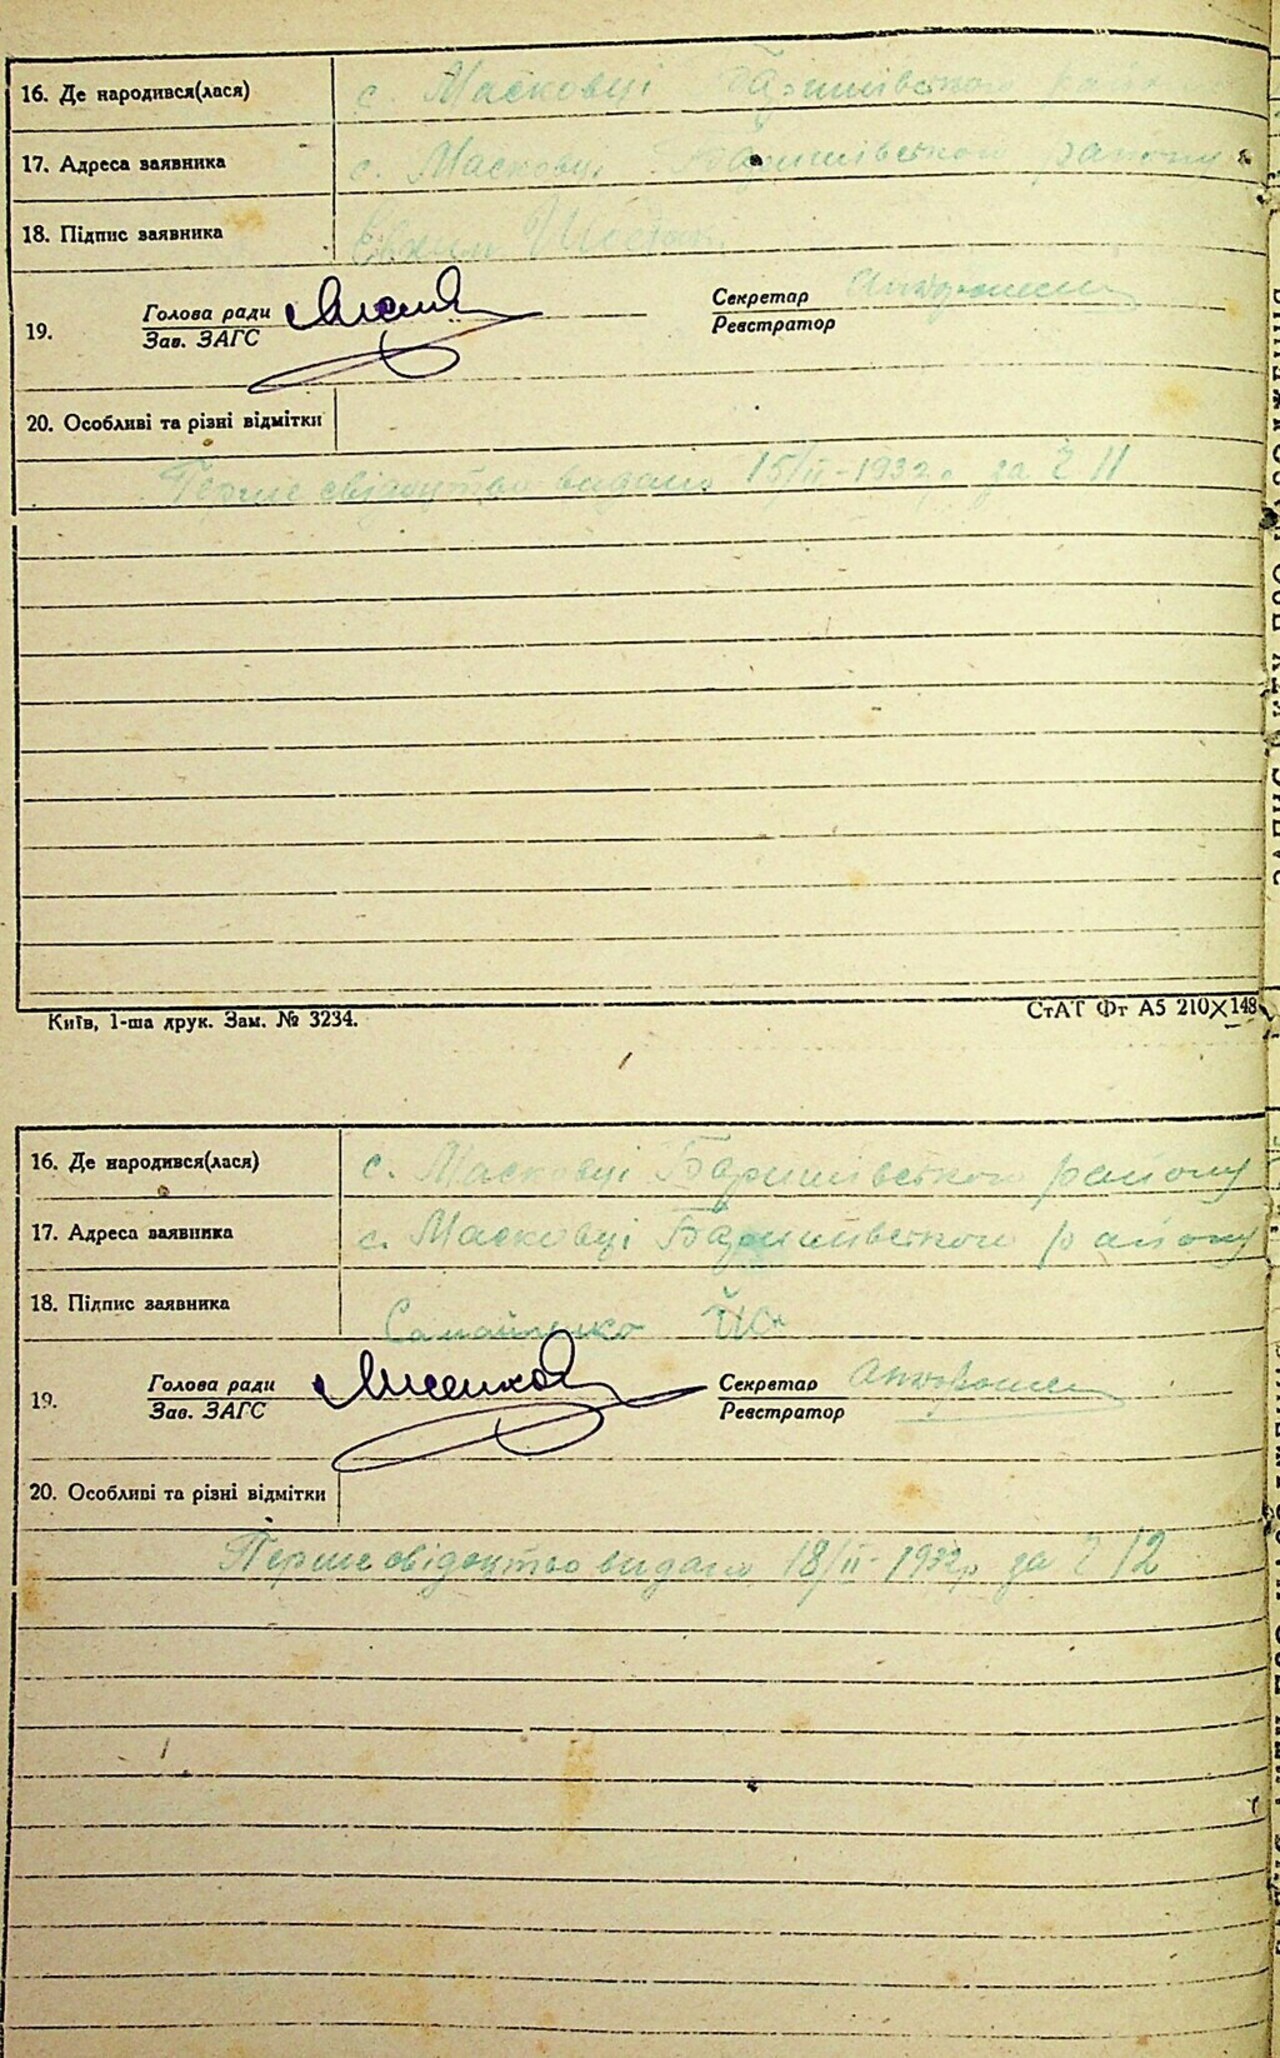 16. Де народився(лася) с. Масковці Баришівського району
17. Адреса заявника с. Масковці Баришівського району
18. Підпис заявника
19. Голова ради Секретар
Зав. ЗАГС Реєстратор
20. Особливі та різні відмітки
Перше свідоцтво видано 15/II-1932р. за № 11
Київ, 1-ша друк. Зам. № 3234. СтАТ Фт А5 210×148
16. Де народився(лася) с. Масковці Баришівського району
17. Адреса заявника с. Масковці Баришівського району
18. Підпис заявника
19. Голова ради Лисенко Секретар
Зав. ЗАГС Реєстратор
20. Особливі та різні відмітки
Перше свідоцтво видано 18/II-1932р за № 12